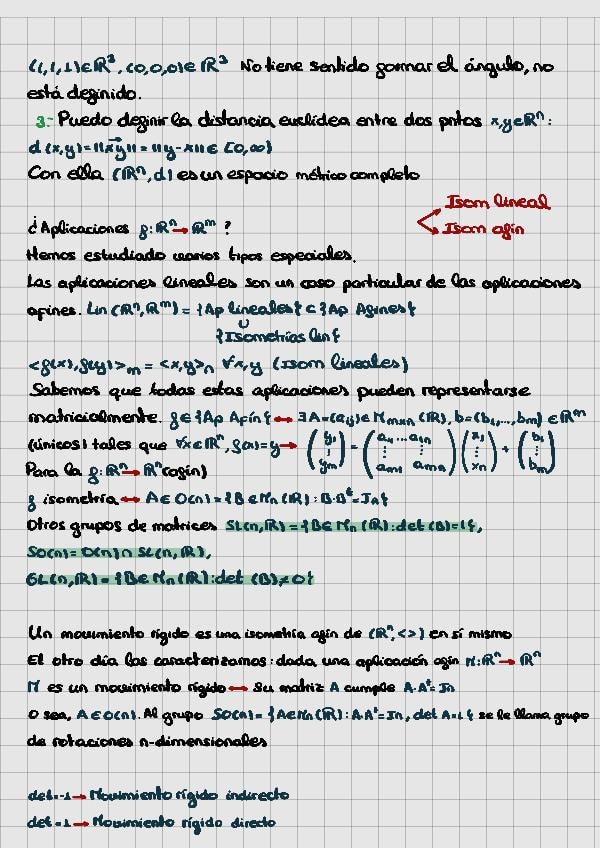 (1,1,1)∈ℝ³. (0,0,0)∈ℝ³ No tiene sentido formar el ángulo, no
está definido.
3.- Puedo definir la distancia euclídea entre dos pntos x,y∈ℝⁿ:
d(x,y)=||x͞y⃗||=||y-x||∈[0,∞)
Con ella (ℝⁿ,d) es un espacio métrico completo
Isom lineal
¿Aplicaciones f:ℝⁿ→ℝᵐ?
Isom afín
Hemos estudiado varios tipos especiales.
Las aplicaciones lineales son un caso particular de las aplicaciones
afines. Lin(ℝⁿ,ℝᵐ)={Ap lineales}⊂{Ap Afines}
∪
{Isometrías lin}
<f(x),f(y)>ₘ=<x,y>ₙ ∀x,y (Isom lineales)
Sabemos que todas estas aplicaciones pueden representarse
matricialmente. f∈{Ap Afín}↔∃A=(aᵢⱼ)∈Mₘₓₙ(ℝ), b=(b₁,...,bₘ)∈ℝᵐ
(únicos) tales que ∀x∈ℝⁿ, f(x)=y→(y₁ ⋮ yₘ)=(a₁₁...a₁ₙ ⋮ ⋮ aₘ₁ aₘₙ)(x₁ ⋮ xₙ)+(b₁ ⋮ bₘ)
Para la f:ℝⁿ→ℝⁿ(afín)
f isometría↔A∈O(n)={B∈Mₙ(ℝ):B·Bᵗ=Iₙ}
Otros grupos de matrices SL(n,ℝ)={B∈Mₙ(ℝ):det(B)=1},
SO(n)=O(n)∩SL(n,ℝ),
GL(n,ℝ)={B∈Mₙ(ℝ):det(B)≠0}
Un movimiento rígido es una isometría afín de (ℝⁿ,<>) en sí mismo
El otro día las caracterizamos: dada una aplicación afín M:ℝⁿ→ℝⁿ
M es un movimiento rígido↔Su matriz A cumple A·Aᵗ=Iₙ
o sea, A∈O(n). Al grupo SO(n)={A∈Mₙ(ℝ):A·Aᵗ=Iₙ, det A=1} se le llama grupo
de rotaciones n-dimensionales
det=-1→Movimiento rígido indirecto
det=1→Movimiento rígido directo